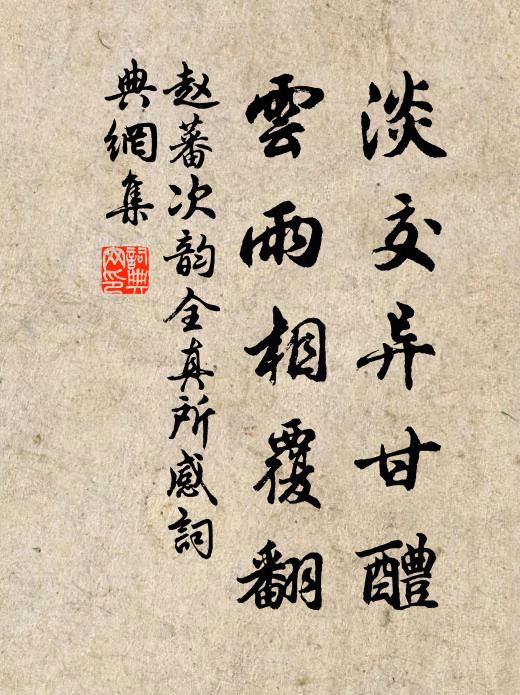 淡交异甘醴
雲雨相覆翻
赵蕃次韵全真所感詞
典網集
詞典
文印